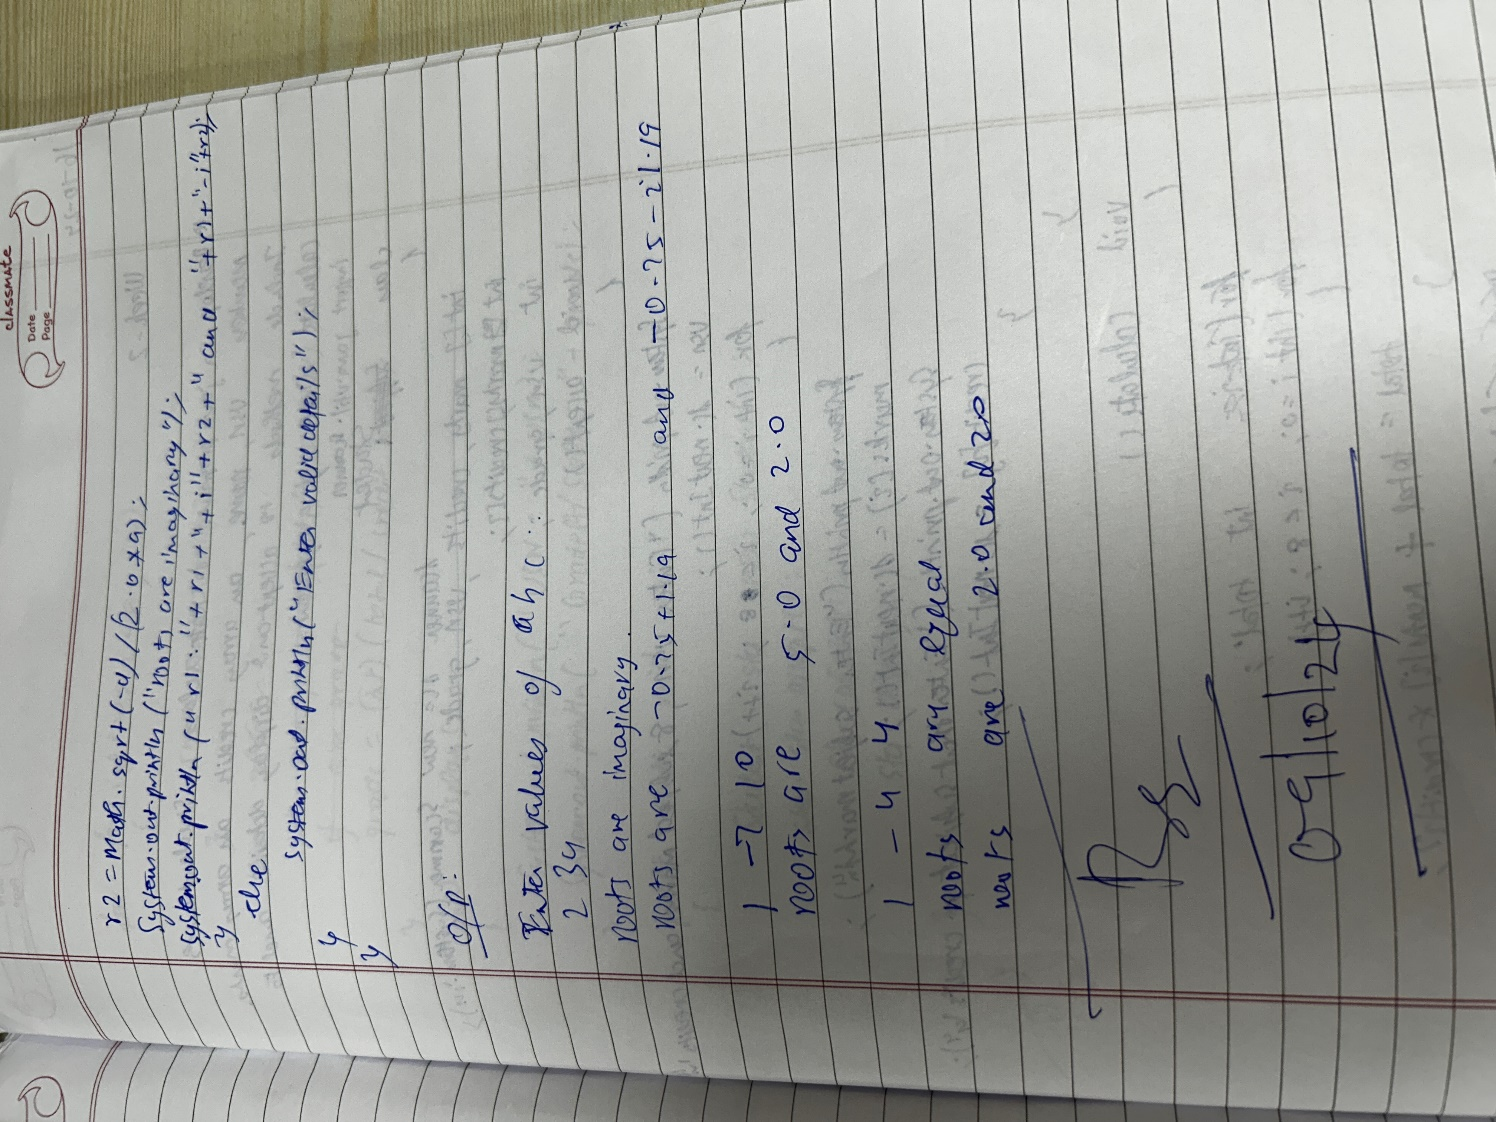 classmate
Date
Page
r2 = Math.sqrt(-d)/(2.0*a);
System.out.println("roots are imaginary");
System.out.println("r1:"+r1+"+i"+r2+" and "+r1+"-i"+r2);
}
else
System.out.println("Enter valid details");
}
}
O/P:
Enter values of a b c:
2 3 4
roots are imaginary
roots are -0.75+1.19 and -0.75-i1.19
1 -7 10
roots are 5.0 and 2.0
1 -4 4
roots are Equal
roots are 2.0 and 2.0
09/10/24